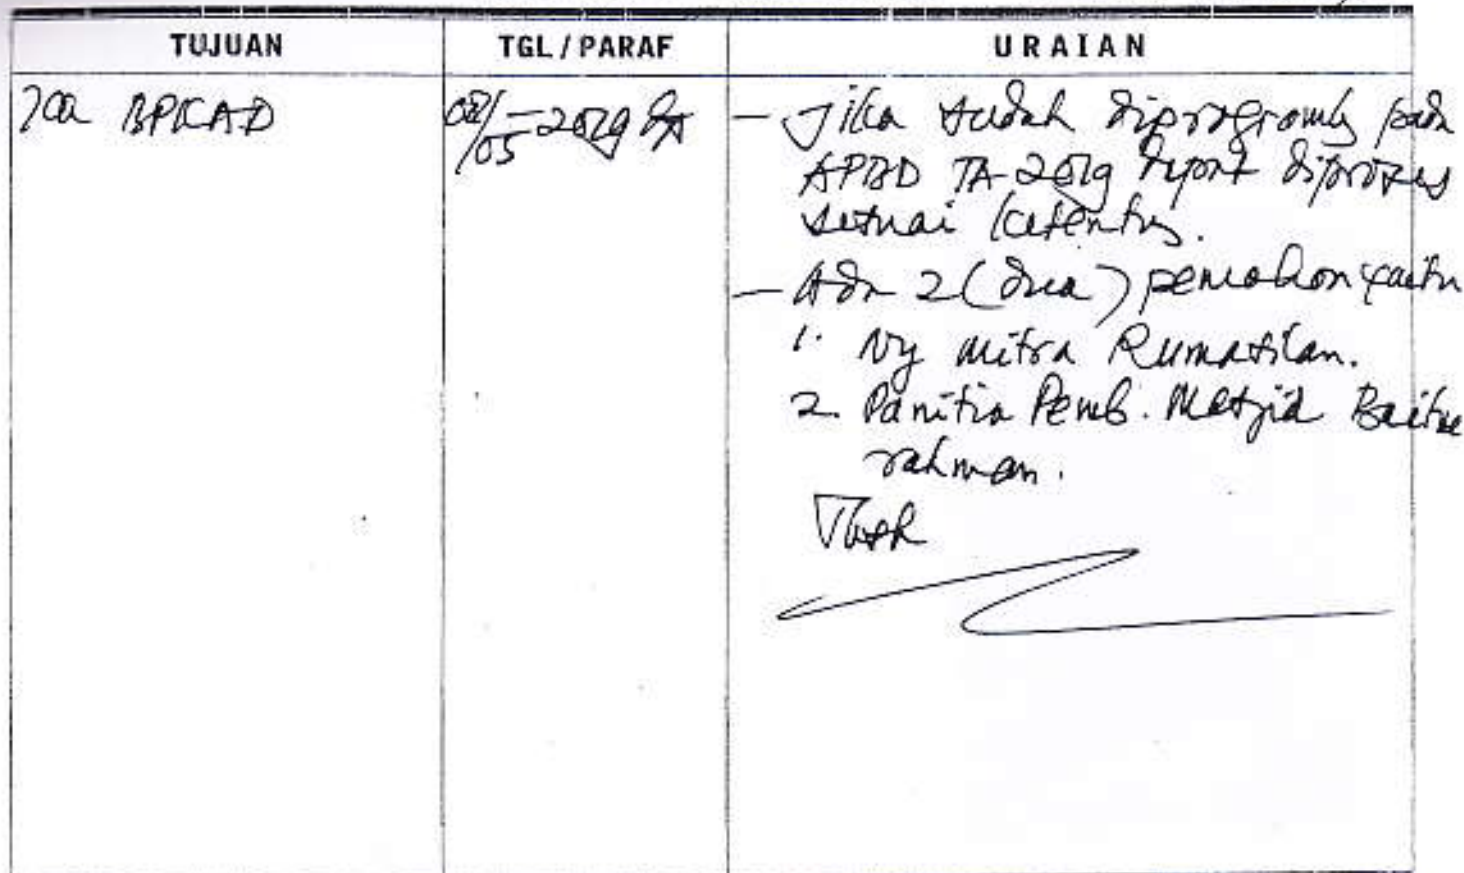 TUJUAN TGL / PARAF URAIAN
Ka BPKAD 08/05-2019 - Jika sudah diprogramkan pada
APBD TA 2019 dapat diproses
sesuai ketentuan.
- Ada 2 (dua) pemohon yaitu
1. Ny Mitra Rumatilan.
2. Panitia Pemb. Mesjid Baitur
rahman.